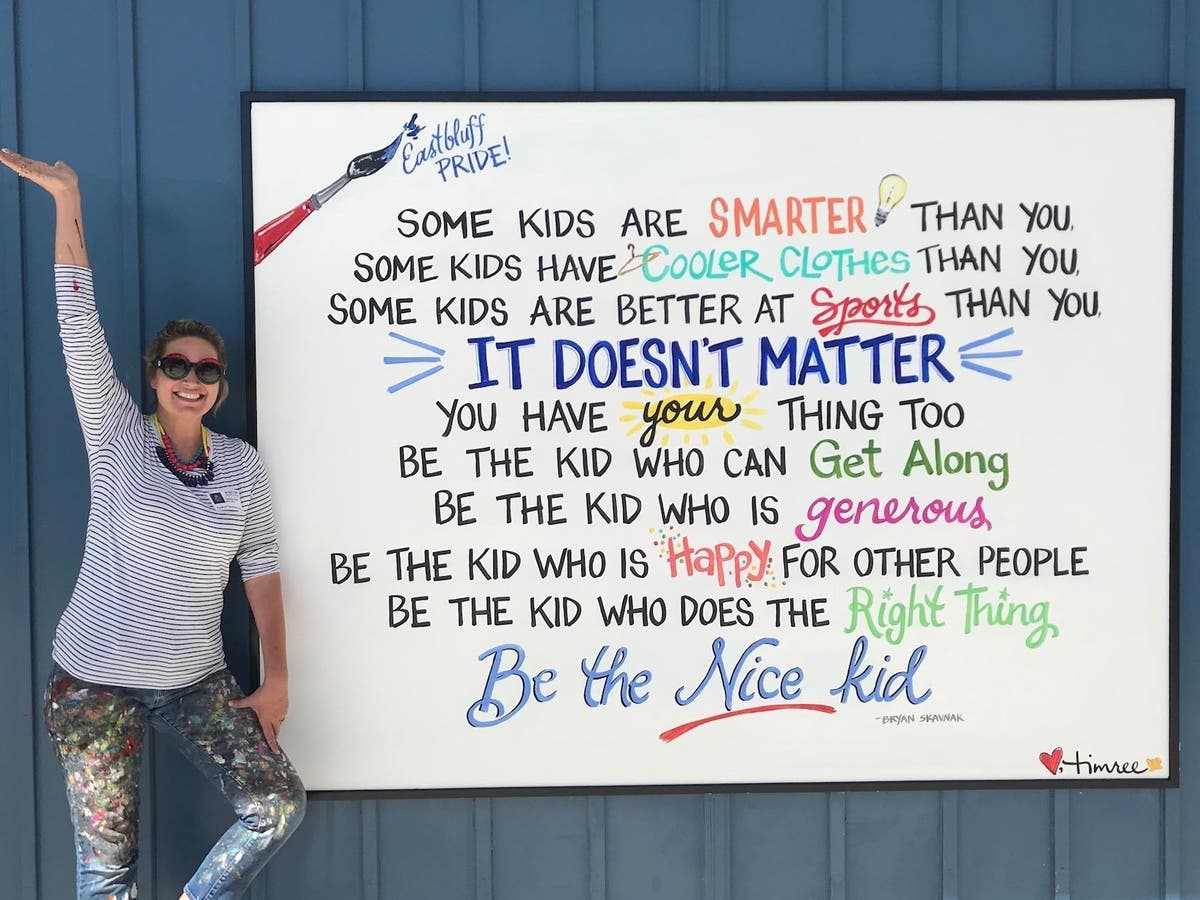 Eastbluff
PRIDE!
SOME KIDS ARE SMARTER THAN YOU,
SOME KIDS HAVE COOLER CLOTHES THAN YOU,
SOME KIDS ARE BETTER AT Sports THAN YOU,
IT DOESN'T MATTER
YOU HAVE your THING TOO
BE THE KID WHO CAN Get Along
BE THE KID WHO IS generous
BE THE KID WHO IS Happy FOR OTHER PEOPLE
BE THE KID WHO DOES THE Right Thing
Be the Nice kid
-BRYAN SKAVNAK
timree